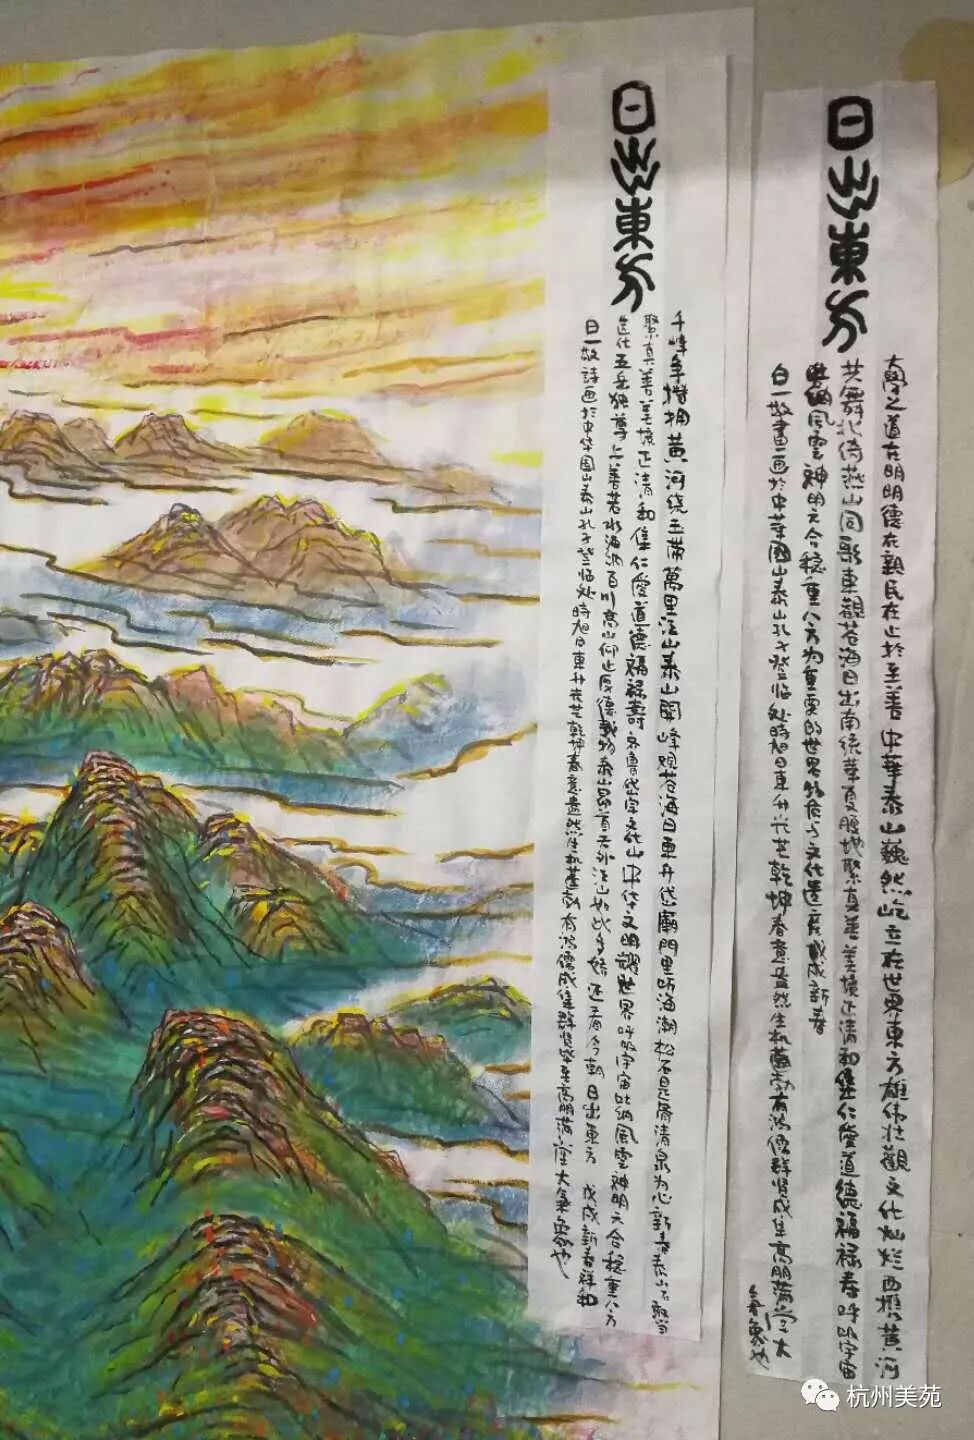 日出東方
南學之道在明明德在親民在止於至善中華泰山巍然屹立在世界東方雄偉壯觀文化灿烂西携黄河
共舞北倚燕山同影東觀苍海日出南统華夏腹地聚真善美境正清和集仁愛道德福禄寿呼吸宇宙
吐纳風雲神明六合稳重八方为重要的世界自然与文化遗産戊戌新春
白一故書画於中华國山泰山孔子登临处時旭日東升光芒乾坤春意盎然生机蓬勃有鸿儒群贤成集高朋满堂大
日出東方
千峰争攒拥黄河绕玉带萬里江山泰山開峰观苍海日東升岱廟門里听海潮松石是骨清泉为心新春泰山石敢当
聚真善美境正清和集仁愛道德福禄壽齐鲁岱宗文化山中华文明耀世界呼吸宇宙吐纳風雲神明六合稳重八方
五岳独尊上善若水海纳百川高山仰止厚德載物泰山昂首天外江山如此多娇还看今朝日出東方 戊戌新春祥和
白一故詩画於中华国山泰山孔子登临处時旭日東升光芒乾坤春意盎然生机蓬勃有鸿儒成集群贤毕至高朋满座大象
杭州美苑